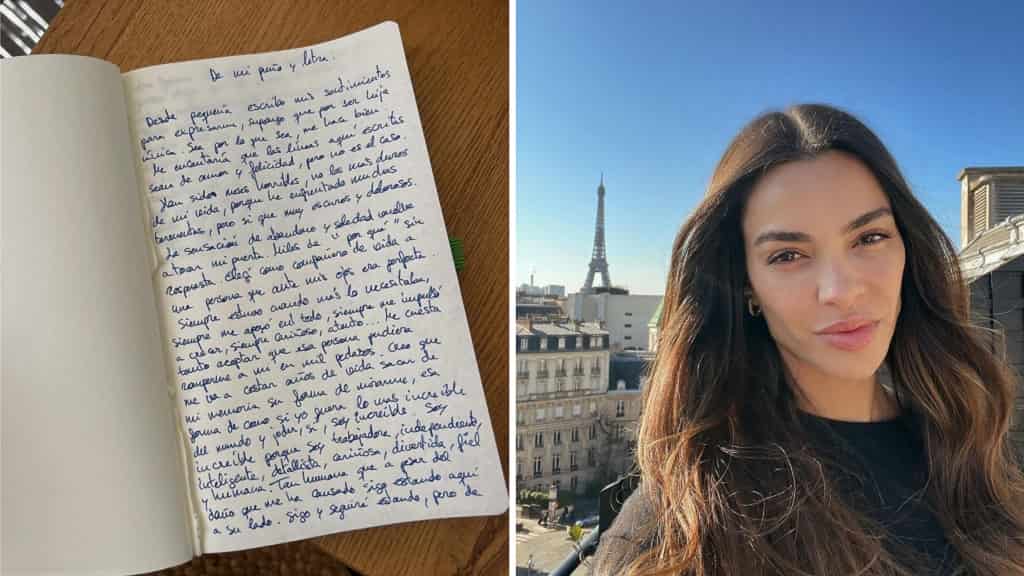 De mi puño y letra.
Desde pequeña escribo mis sentimientos
para expresarme, supongo que por ser hija
única. Sea por lo que sea, me hace bien
Me encantaría que las líneas aquí escritas
sean de amor y felicidad, pero no es el caso.
Han sidos meses horribles, no los mas duros
de mi vida, porque he enfrentado muchas
tormentas, pero si que muy oscuros y dolorosos.
La sensación de abandono y soledad volvía
a tocar mi puerta. Miles de "por qué" sin
respuesta. Elegí como compañero de vida a
una persona que ante mis ojos era perfecta.
Siempre estuvo cuando más lo necesitaba,
siempre me apoyó en todo, siempre me impulsó
a crear, siempre cariñoso, atento... Me cuesta
tanto aceptar que esa persona pudiera
romperme a mí en mil pedazos. Creo que
me va a costar años de vida sacar de
mi memoria su forma de mirarme, esa
forma de como si yo fuera lo mas increíble
del mundo y joder, si, soy increíble. Soy
increíble porque soy trabajadora, independiente,
inteligente, detallista, cariñosa, divertida, fiel
y humana. Tan humana que a pesar del
daño que me ha causado sigo estando aquí
a su lado. Sigo y seguiré estando, pero de